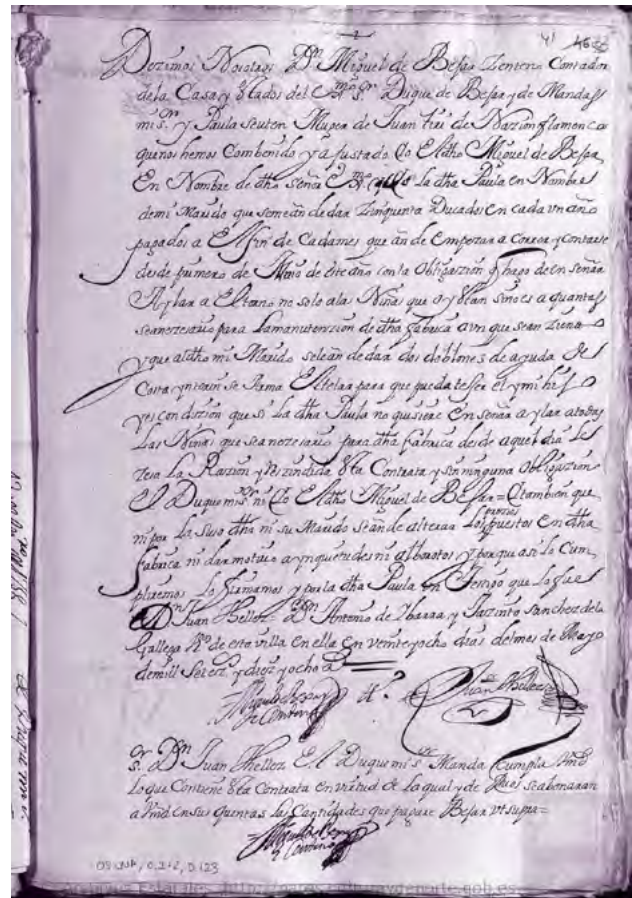 41 46
Dezimos Nosotros Dn Miguel de Befar Zenteno Contador
dela Casa y estados del Exmo Sr Duque de Befar y de Mandas
mi Sr y Paula seuten Muger de Juan de Nazion flamenca
que nos hemos Combenido y ajustado Yo El dho Miguel de Befar
En Nombre de dho señor Exmo la dha Paula en Nombre
de mi Marido que seme an de dar Zinquenta Ducados en cada un año
pagados a El fin de Cadames que an de Empezar a Correr y contarse
desde primero de de este año con la Obligazion q hago de enseñar
A ylar a El torno no solo a las Niñas que oy estan sino es a quantas
sean nezesario para la manutenzion de dha fabrica aun que sean Ziento
y que al dho mi Marido sele an de dar dos doblones de ayuda de
Costa ynterin se Arma El telar para que pueda tejer el y mi hijo
y es condizion que si la dha Paula no quisiere Enseñar a ylar a todas
Las Niñas que sea nezesario para dha fabrica desde aquel dia
zesa La Razion y Reszindida esta Contrata y sin ninguna Obligazion
El Duque mi Sr ni Yo El dho Miguel de Befar = Y tambien que
ni por La suso dha ni su Marido se an de alterar Los prezios puestos En dha
fabrica ni dar motibo a ynquietudes ni alborotos y porque asi lo Cum
pliremos Lo firmamos y por la dha Paula un Testigo que lo fue
Dn Juan Thellez Dn Antonio de Ybarra, y Jazinto Sanchez dela
Gallega Vo de esta villa en ella En veinte y ocho dias del mes de Mayo
de mill Setezs y diez y ocho as
Miguel de Befar
Zenteno
Juan Thellez
Sr Dn Juan Thellez El Duque mi Sr Manda Cumpla Vmd
Lo que Contiene esta Contrata en virtud de la qual y de se abonaran
a Vmd en sus quentas las Cantidades que pagare Befar Vt supra =
Miguel de Befar
Zenteno
OSUNA, C.242, D.123